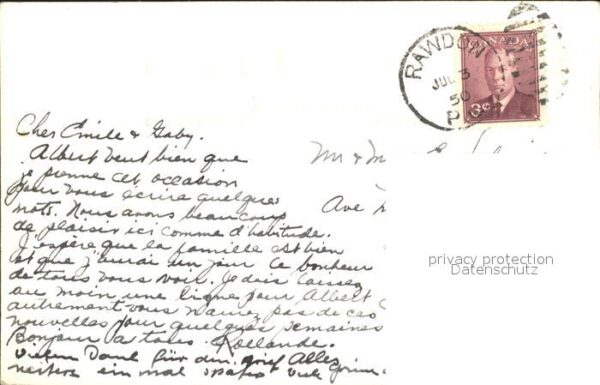 RAWDON
JUL 3
50
P.Q.
CANADA
3¢
Cher Emile & Gaby.
Albert veut bien que
je prenne cet occasion
pour vous écrire quelques
mots. Nous avons beaucoup
de plaisir ici comme d'habitude.
J'espère que la famille est bien
et que j'aurai un jour le bonheur
de tous vous voir. Je dois laissez
au moin une ligne pour Albert
autrement vous n'aurez pas de ces
nouvelles pour quelques semaines
Bonjour a tous. Rollande.
Vielen Dank für den Brief Alles
weitere ein mal später viele
Mr & M
Ave
privacy protection
Datenschutz